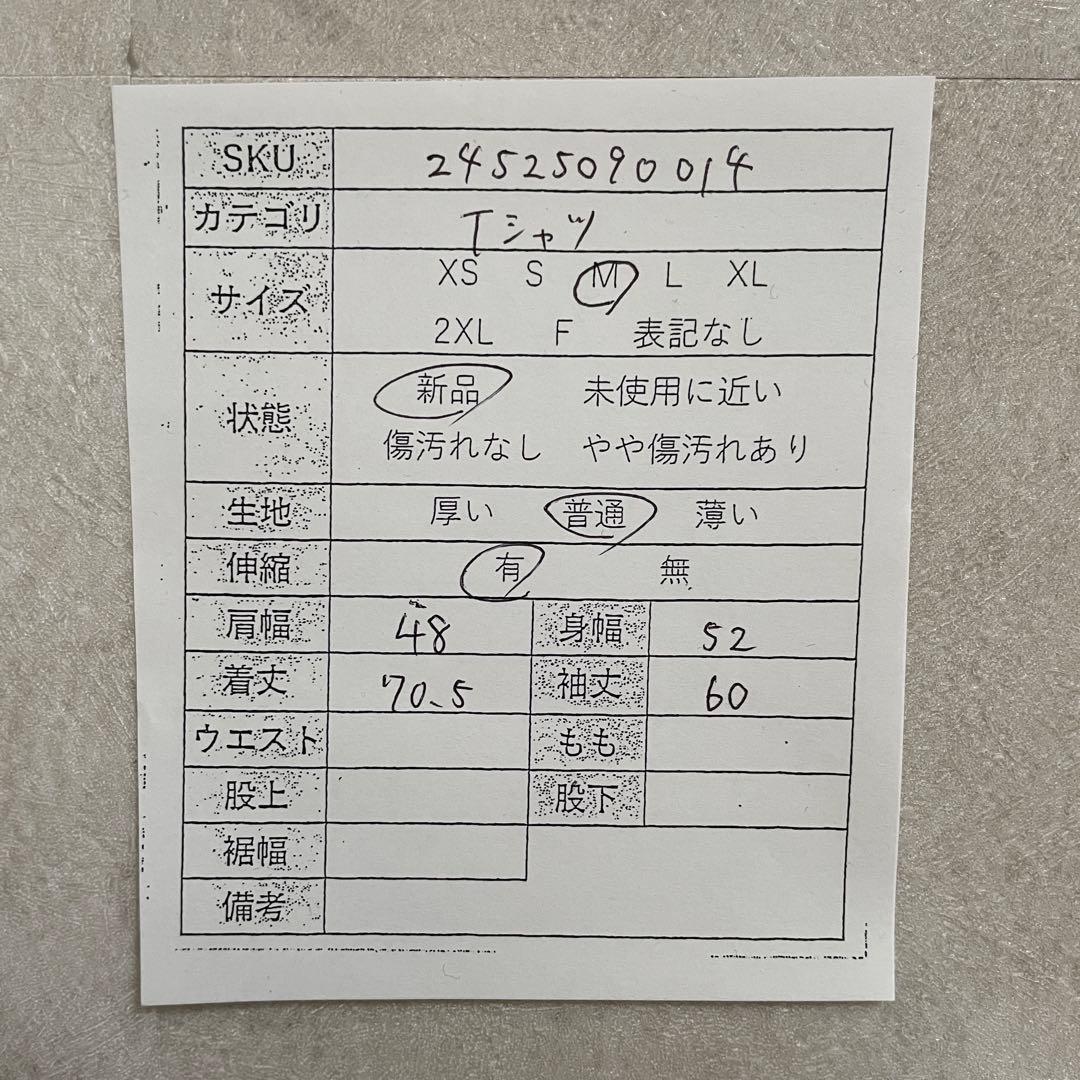 SKU 24525090014
カテゴリ Tシャツ
サイズ XS S M L XL
2XL F 表記なし
状態 新品 未使用に近い
傷汚れなし やや傷汚れあり
生地 厚い 普通 薄い
伸縮 有 無
肩幅 48 身幅 52
着丈 70.5 袖丈 60
ウエスト もも
股上 股下
裾幅
備考